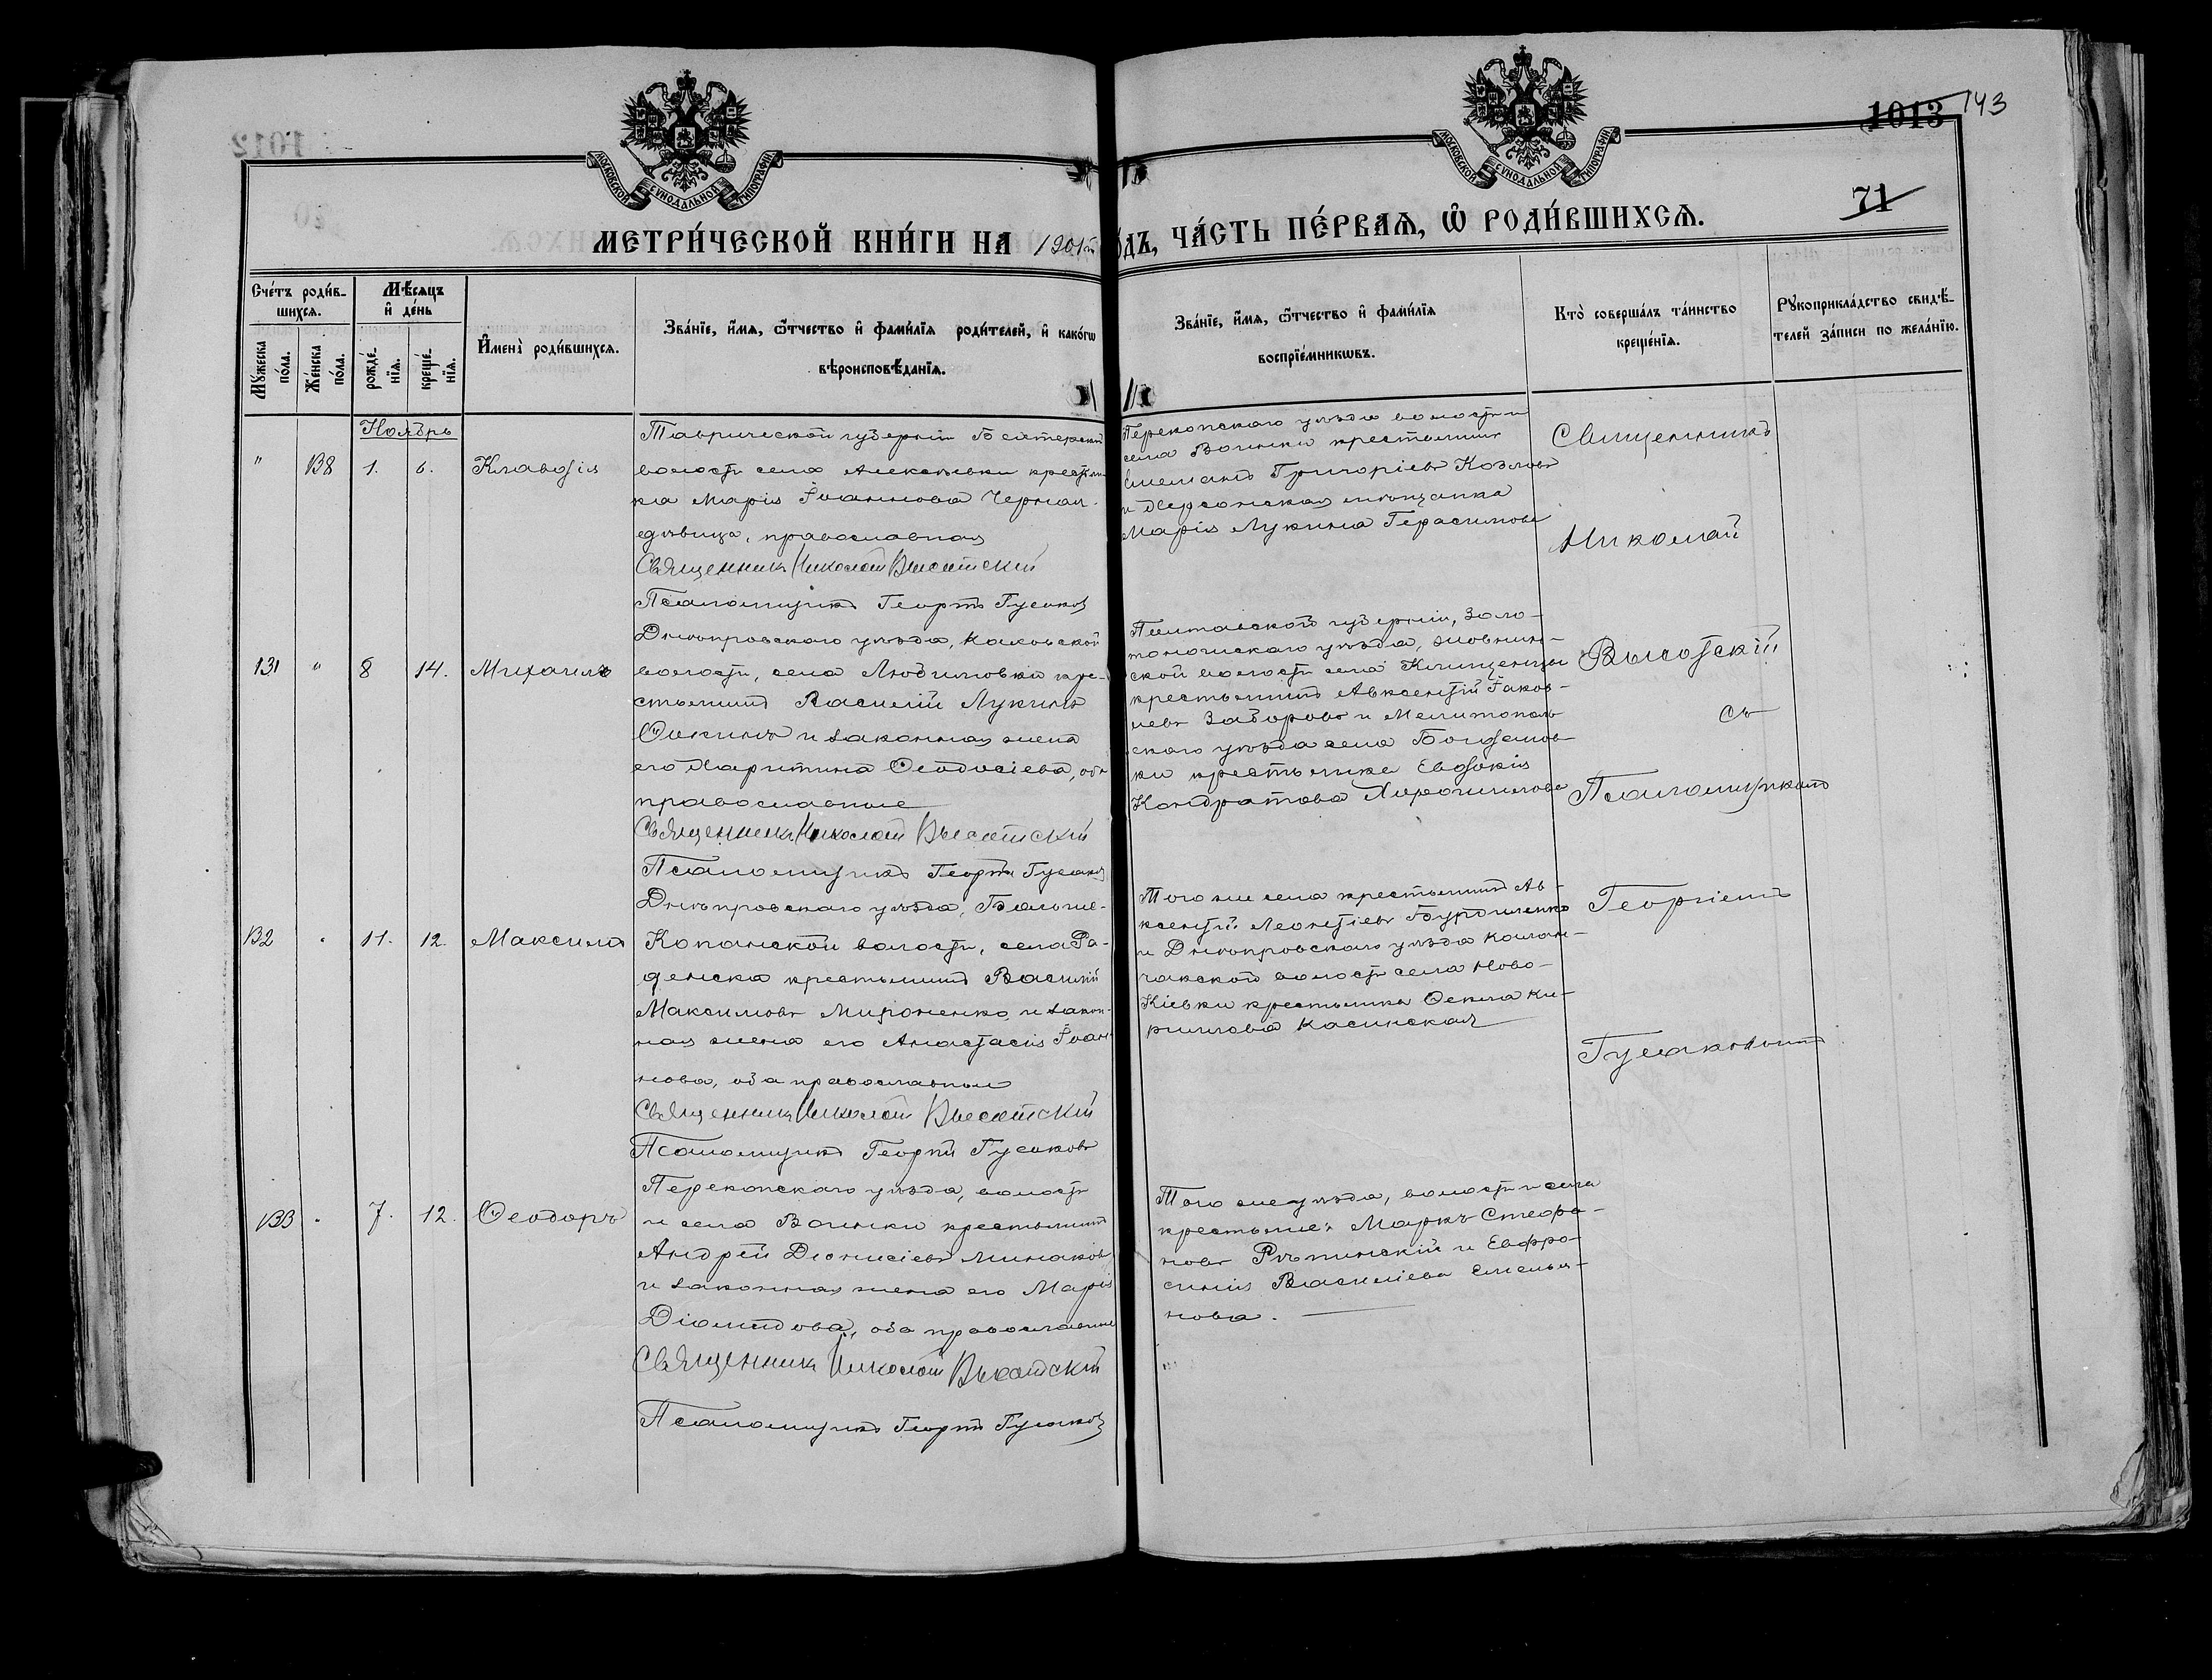 1013 143
71
МОСКОВСКОЙ СѴНОДАЛЬНОЙ ТИПОГРАФІИ
МОСКОВСКОЙ СѴНОДАЛЬНОЙ ТИПОГРАФІИ
МЕТРИ́ЧЕСКОЙ КНИ́ГИ НА 1901й
ОДЪ, ЧА́СТЬ ПЕ́РВАѦ, Ѡ҃ РОДИ́ВШИХСѦ.
Сче́тъ роди́в-
шихсѧ.
Мꙋ́жеска по́ла.
Же́нска по́ла.
Мѣ́сѧцъ
и҆ де́нь
рожде́-нїѧ.
креще́-нїѧ.
И҆мена̀ роди́вшихсѧ.
Зва́нїе, и҆́мѧ, ѻ҆́тчество и҆ фами́лїѧ роди́телей, и҆ како́гѡ
вѣроисповѣ́данїѧ.
Зва́нїе, и҆́мѧ, ѻ҆́тчество и҆ фами́лїѧ
воспрїе́мникѡвъ.
Кто̀ соверша́лъ та́инство
креще́нїѧ.
Рꙋкоприкла́дство свидѣ́-
телей за́писи по жела́нїю.
Ноябрь
" 138 1. 6. Клавдія
Таврической губерніи
волости села Алексѣевки крестьян-
ка Марія Іоаннова Черная
дѣвица, православная
Священникъ Николай Высотскій
Псаломщикъ Георгій Гусаковъ
Перекопскаго уѣзда волости и
села Воинки крестьянинъ
Григоріевъ Козловъ
и Херсонская мѣщанка
Марія Лукина Герасимова
131 " 8 14. Михаилъ
Днѣпровскаго уѣзда, Каховской
волости, села Любимовки кре-
стьянинъ Василій Лукинъ
и законная жена
его Харитина Ѳеодосіева, оба
православные
Священникъ Николай Высотскій
Псаломщикъ Георгій Гусаковъ
Полтавской губерніи, Золо-
тоношскаго уѣзда,
ской волости села Клищенцы
крестьянинъ Авксентій Іаков-
левъ Заборовъ и Мелитополь-
скаго уѣзда села Богданов-
ки крестьянка Евдокія
Кондратова
132 " 11. 12. Максимъ
Днѣпровскаго уѣзда, Больше-
Копанской волости, села Ра-
денска крестьянинъ Василій
Максимовъ Мироненко, и закон-
ная жена его Анастасія Іоан-
нова, оба православные
Священникъ Николай Высотскій
Псаломщикъ Георгій Гусаковъ
Того же села крестьянинъ Ав-
ксентій Леонтіевъ Бурдименко
и Днѣпровскаго уѣзда Калан-
чакской волости села Ново-
Кіевки крестьянка Ѳекла Ки-
риллова Касинская
133 " 7. 12. Ѳеодоръ
Перекопскаго уѣзда, волости
и села Воинки крестьянинъ
Андрей Діонисіевъ Минаковъ
и законная жена его Марія
Діомидова, оба православные
Священникъ Николай Высотскій
Псаломщикъ Георгій Гусаковъ
Того же уѣзда, волости и села
крестьяне: Маркъ Стефа-
новъ Рѣпинскій и Евфро-
синія Василіева Емелья-
нова.
Священникъ
Николай
Высотскій
съ
Псаломщикомъ
Георгіемъ
Гусаковымъ